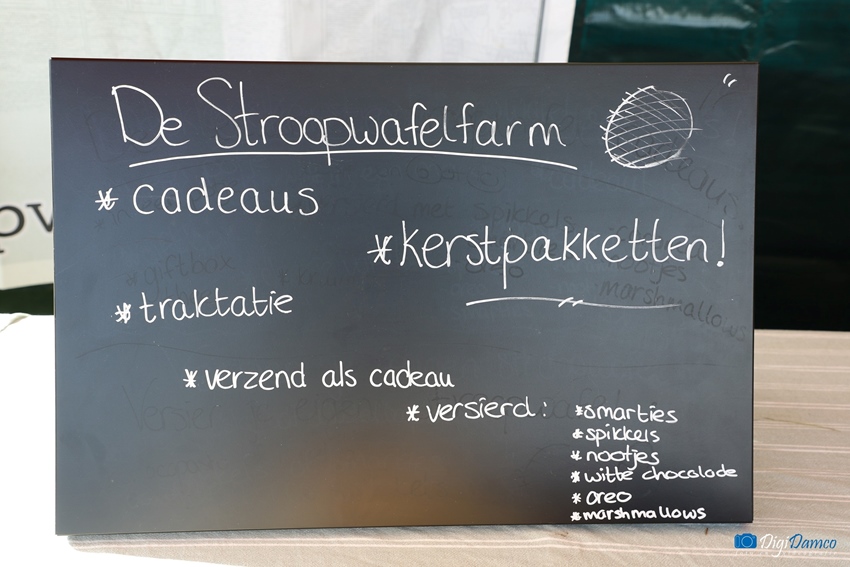 De Stroopwafelfarm
* cadeaus
* kerstpakketten!
* traktatie
* verzend als cadeau
* versierd:
* smarties
* spikkels
* nootjes
* witte chocolade
* oreo
* marshmallows
DigiDamco